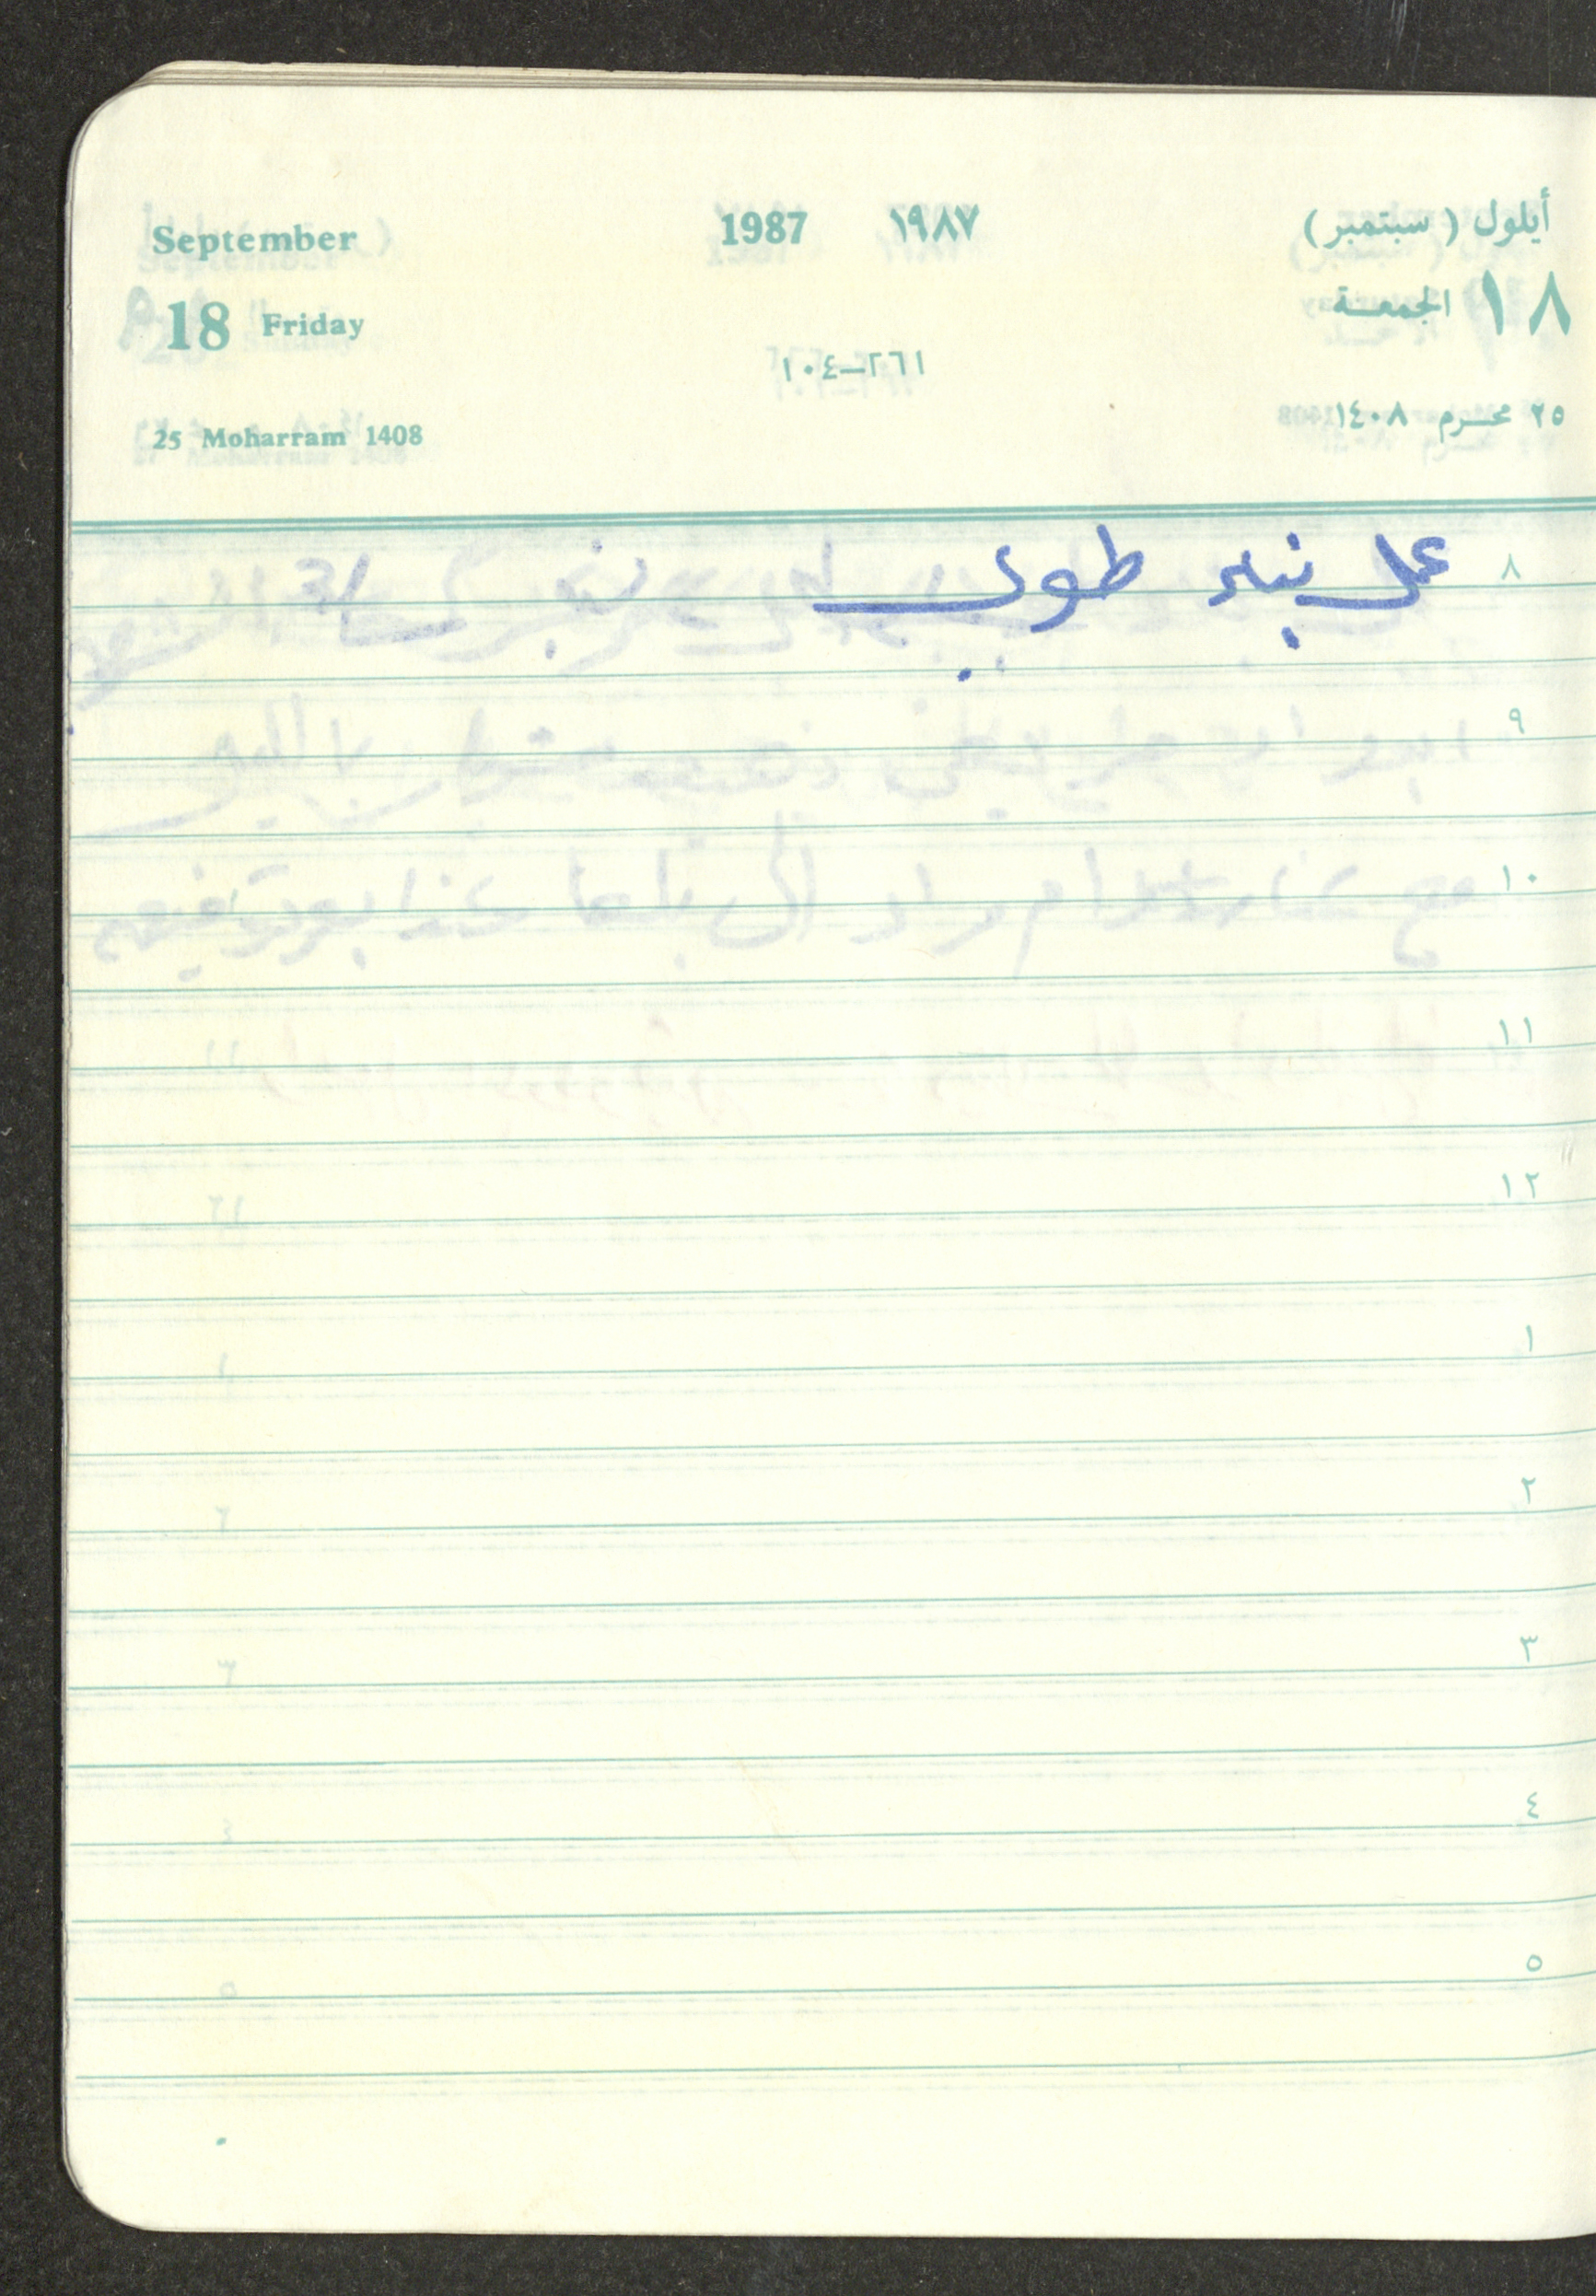 September 1987 ١٩٨٧ أيلول ( سبتمبر )
18 Friday ١٨ الجمعة
٢٦١-١٠٤
25 Moharram 1408 ٢٥ محرم ١٤٠٨
٨ طوب
٩
١٠
١١
١٢
١
٢
٣
٤
٥